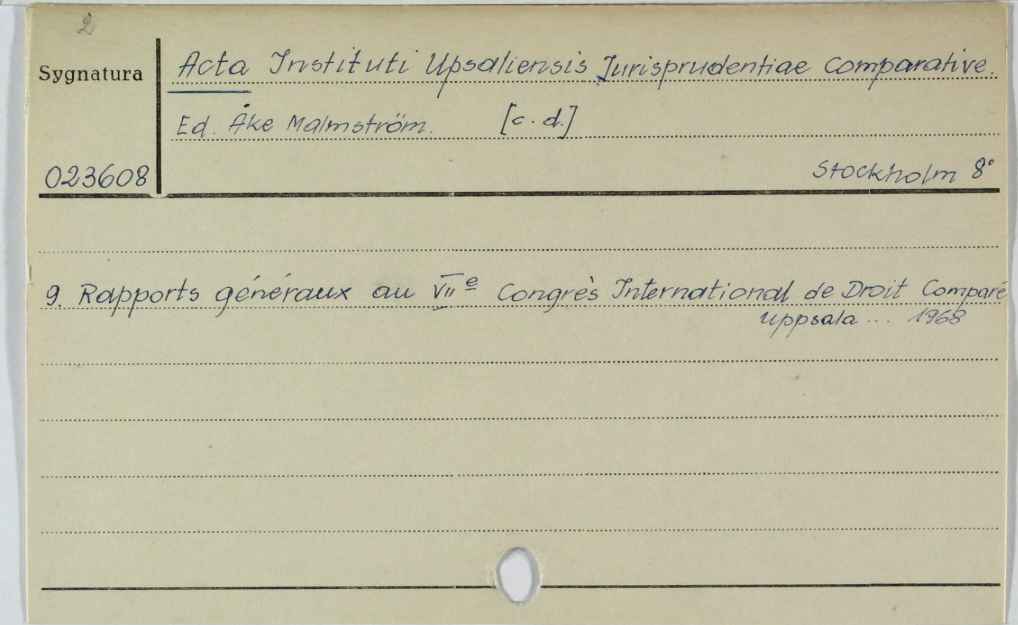 2
Sygnatura
Acta Instituti Upsaliensis Jurisprudentiae Comparative.
Ed. Åke Malmström. [c. d.]
023608
Stockholm 8°
9. Rapports généraux au VIIe Congrès International de Droit Comparé
Uppsala ... 1968